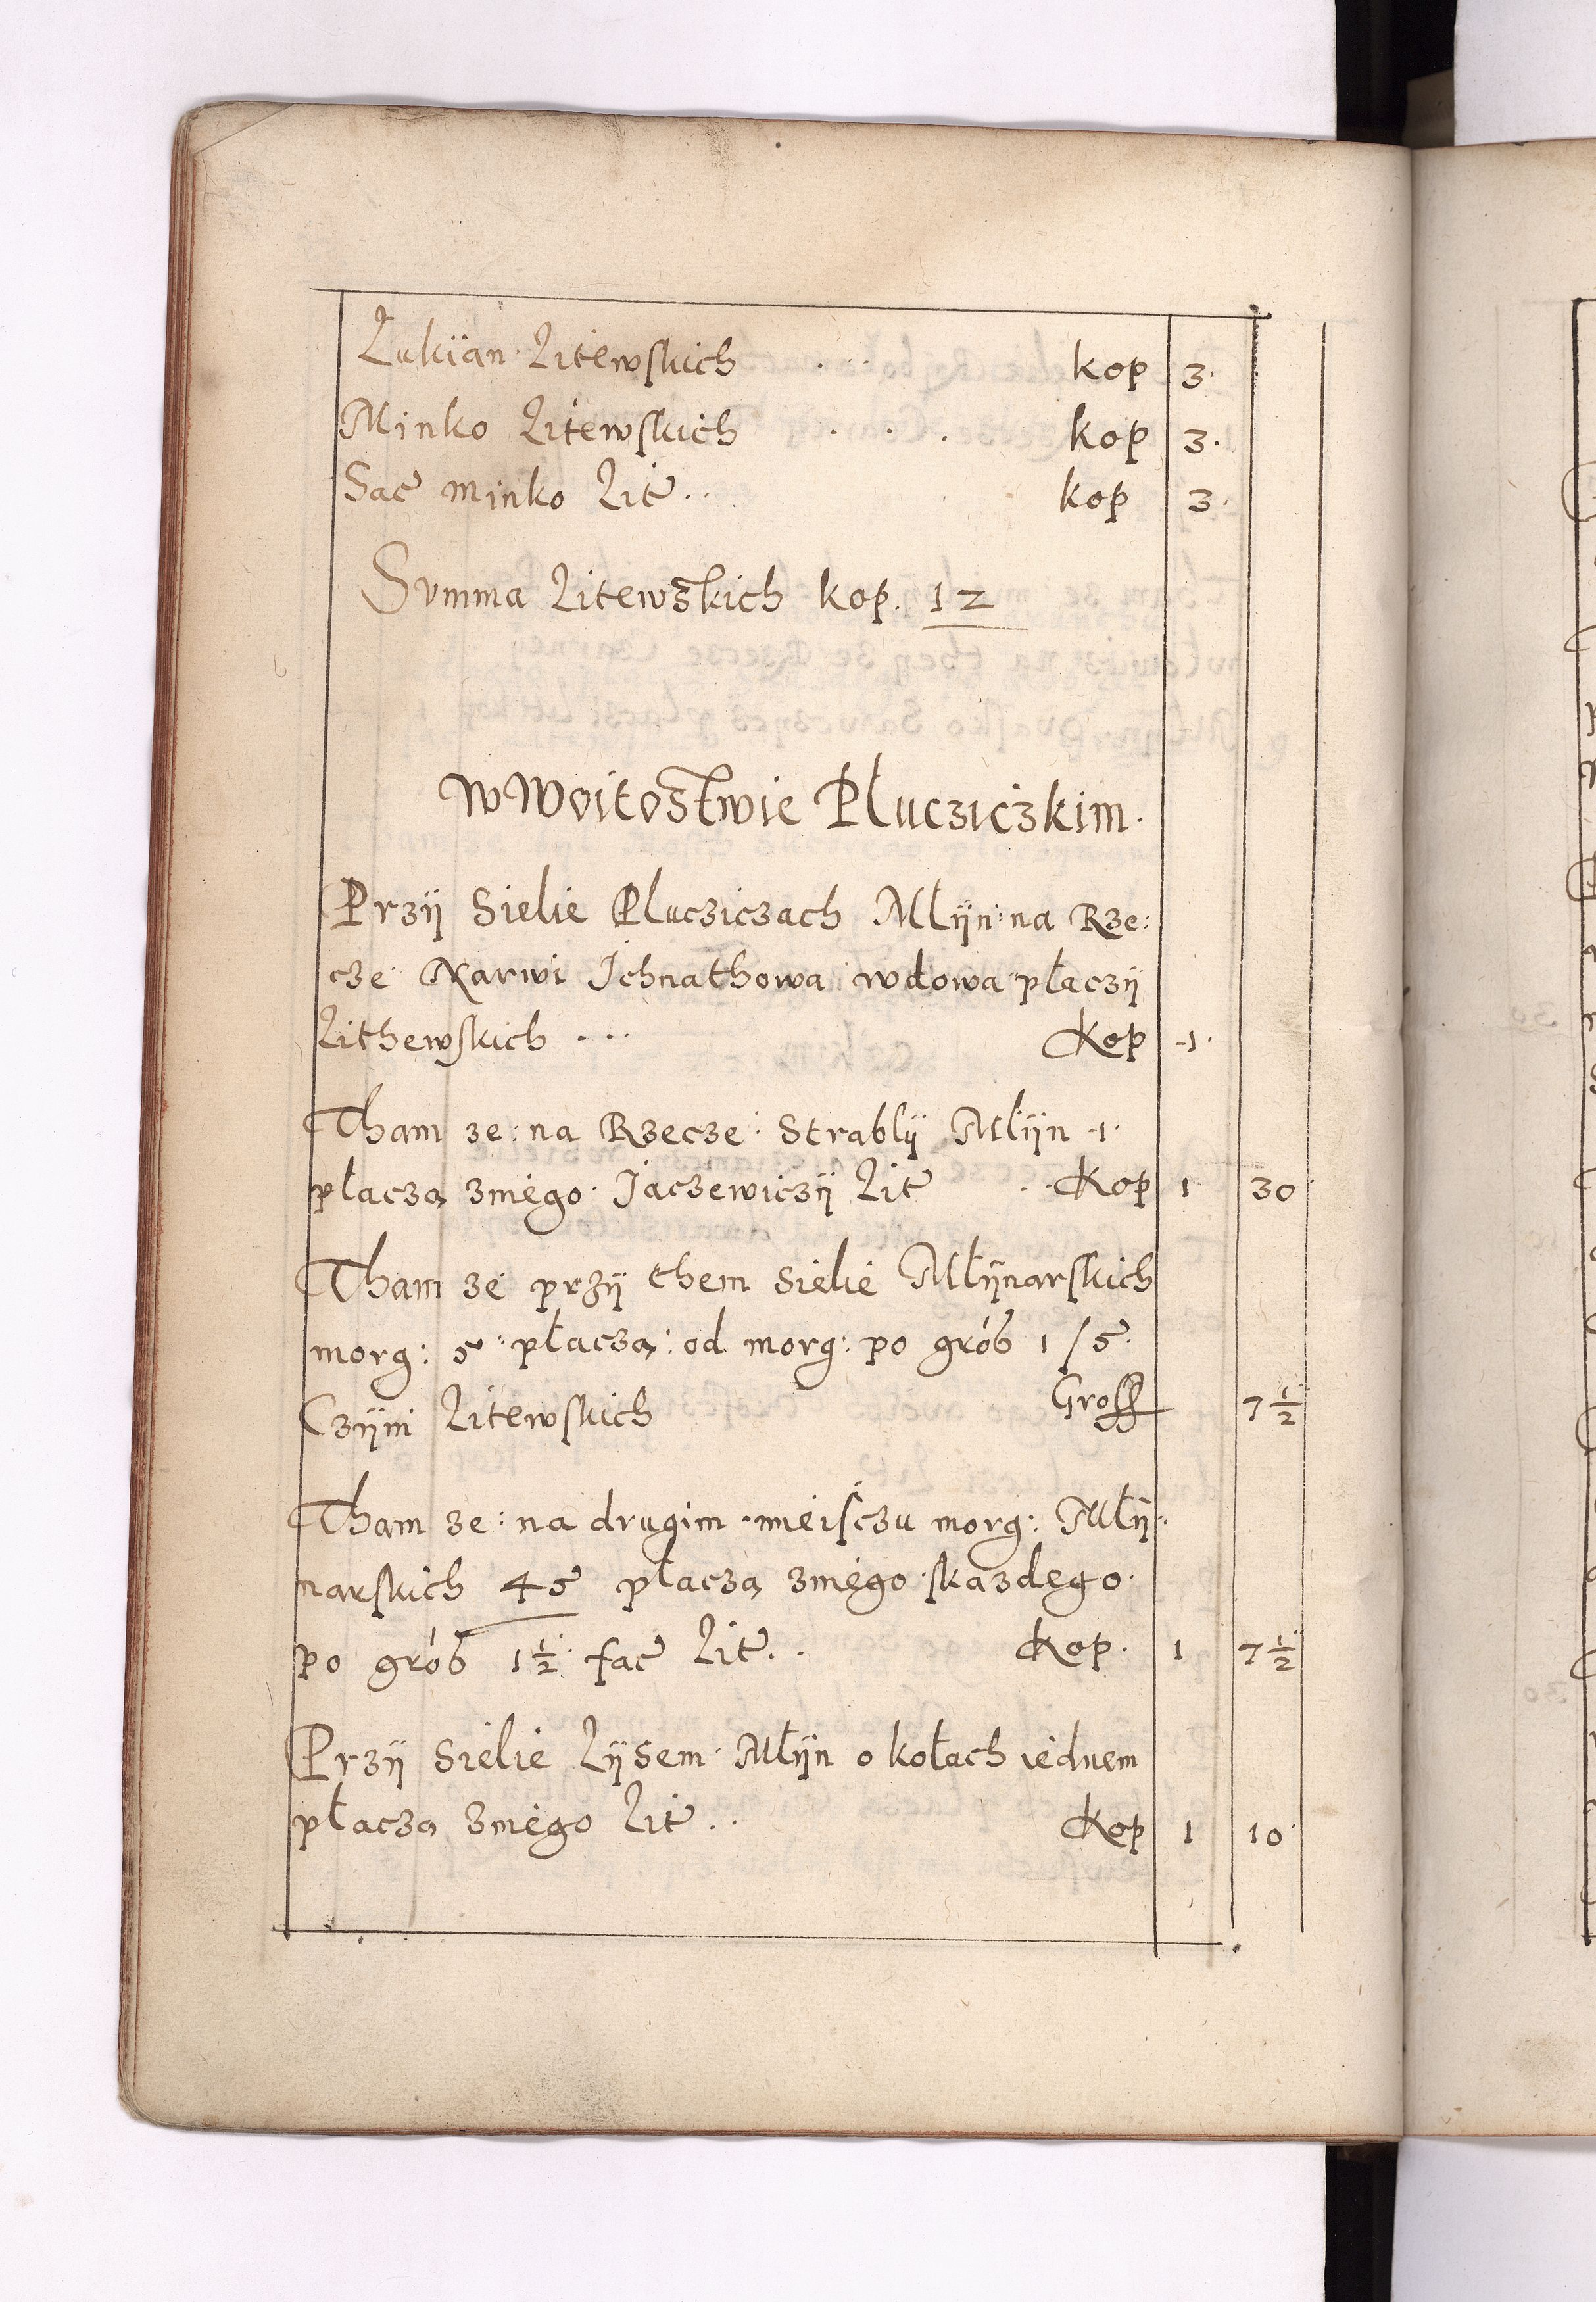 Lukÿan Litewskich . . . kop 3.
Minko Litewskich . . . kop 3.
Sac minko Lit . . kop 3.
Summa Litewskich kop. 12
W Woitostwie Plucziczkim.
Przÿ Sielie Plucziczach Mlÿn na Rze:
cze Narwi Ichnathowa wdowa płaczÿ
Lithewskich . . . kop 1.
Tham ze: na Rzecze Strablÿ Mlÿn 1.
płacza zniego Jaczewiczÿ Lit . . Kop 1 30
Tham ze przÿ them Sielie Młÿnarskich
morg: 5 płacza: od morg: po groß 1/5.
Czÿni Litewskich Gross 7 1/2
Tham ze: na drugim mieisczu morg: Młÿ:
narskich 45 płacza zniego skazdego
po groß 1 1/2 fac Lit . . Kop. 1 7 1/2
Przÿ Sielie Lÿsem Młÿn o kołach iednem
płacza zniego Lit . . Kop 1 10